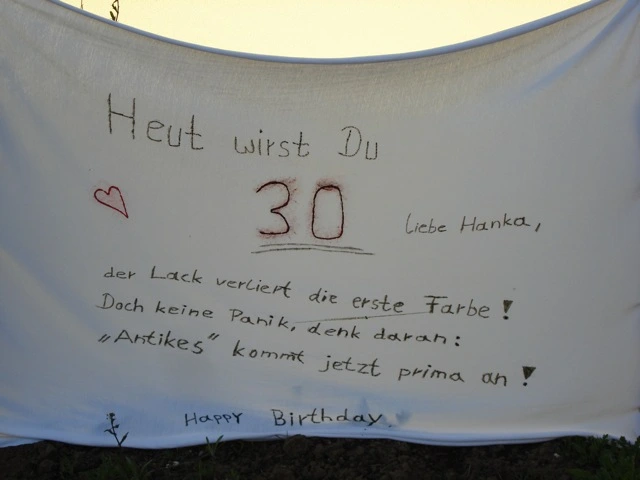 Heut wirst Du
30 liebe Hanka,
der Lack verliert die erste Farbe!
Doch keine Panik, denk daran:
„Antikes" kommt jetzt prima an!
Happy Birthday.